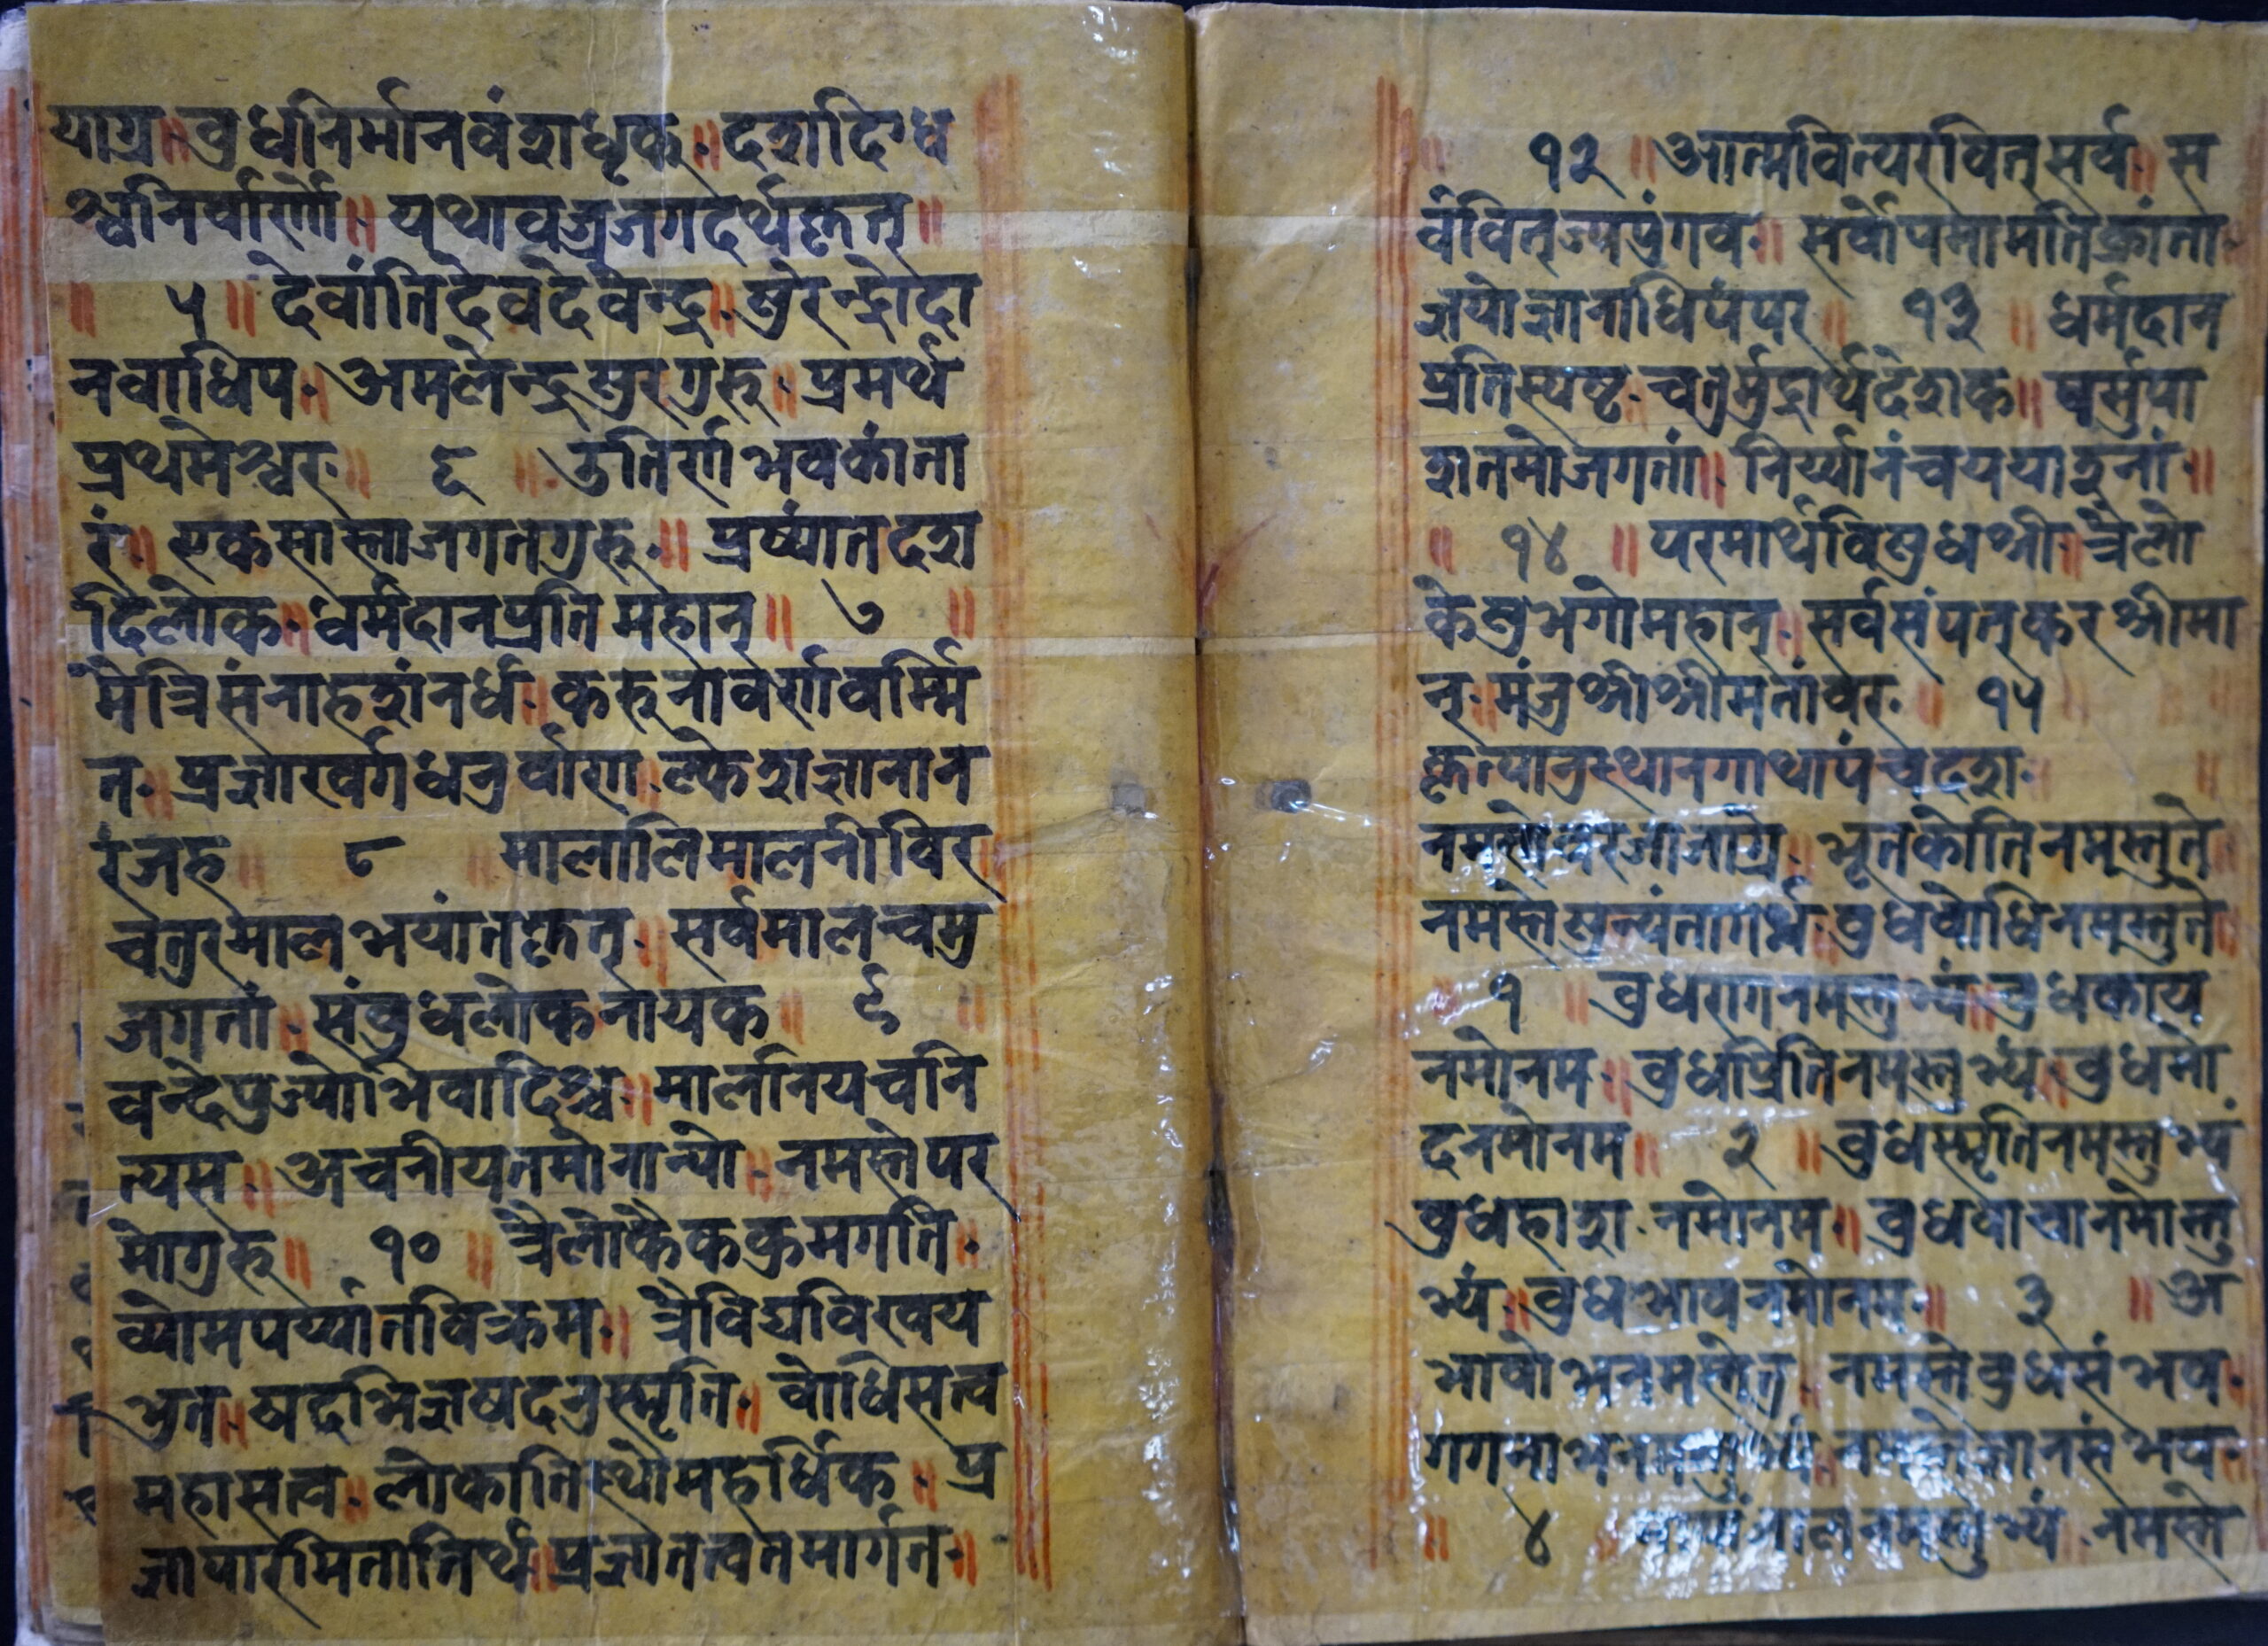 याग्र॥वुधनिर्मानवंशधृक॥दशदिग्ध
श्वनिर्वार्णो॥यथावज्रजगदर्थकृत्॥
॥ ५ ॥देवांतिदेवदेवेन्द्र॥सुरेन्द्रोदा
नवाधिप॥अमलेन्द्रसुरगुरु॥प्रमर्थ
प्रथमेश्वर॥ ६ ॥उतिर्णभवकांता
रं॥एकसास्ताजगतगुरु॥प्रष्यांतदश
दिलोक॥धर्मदानप्रति महान्॥ ७ ॥
मैत्रिसंनाहशंनर्ध॥करुनावर्णवर्म्मि
त॥प्रज्ञाखर्वगधनुर्वाण॥ल्केशज्ञानान
रंजह॥ ८ ॥मालालिमालनीविर
चतुरमालभयांतकृत्॥सर्वमालचमु
जगतां॥संवुधलोकनायक॥ ९ ॥
वन्देपुज्योभिवादिश्च॥मार्लानियचनि
त्यस॥अचनीयतमोनान्यो॥नमस्तेपर
मोगुरु॥ १० ॥त्रैलोकैकक्रमगति॥
व्योमपर्य्यातविक्रम॥त्रैविद्यविखय
भुत॥षदभिज्ञषदनुस्मृति॥वोधिसत्व
महासत्व॥लोकातिस्थोमहर्धिक॥प्र
ज्ञापारमितातिर्थ॥प्रज्ञातत्वतमार्गत॥
॥ १२ ॥आत्मवित्परवित्सर्व॥स
र्वेवित्ज्यपुंगव॥सर्वोपमामतिक्रांता॥
ज्ञयोज्ञानाधिपंपर॥ १३ ॥धर्मदान
प्रतिस्यष्ट॥चतुर्मुद्रार्थदेशक॥षर्सुपा
शतमोजगतां॥निर्य्यानंचययाइनां॥
॥ १४ ॥परमार्थविसुधश्री॥त्रैलो
केसुभगोमहान्॥सर्वसंपत्करश्रीमा
न्॥मंजुश्रीश्रीमतांवर॥ १५
कृत्यानुस्थानगाथापंचदश॥
भूतकोतिनमस्तुते
नमस्तेसुन्यंतागर्भ॥वुधवोधिनमस्तुते
॥ १ ॥वुधरागनमस्तुभ्यं॥वुधकाय
नमोनम॥वुधप्रितिनमस्तुभ्यं॥वुधमो
दनमोनम॥ २ ॥वुधस्मृतिनमस्तुभ्यं
वुधहाश॥नमोनम॥वुधवाचानमोस्तु
भ्यं॥वुधभावनमोनम॥ ३ ॥अ
भावोभनमस्तेतु॥नमस्तेवुधसंभव॥
॥ ४ नमस्तुभ्यं॥नमस्ते